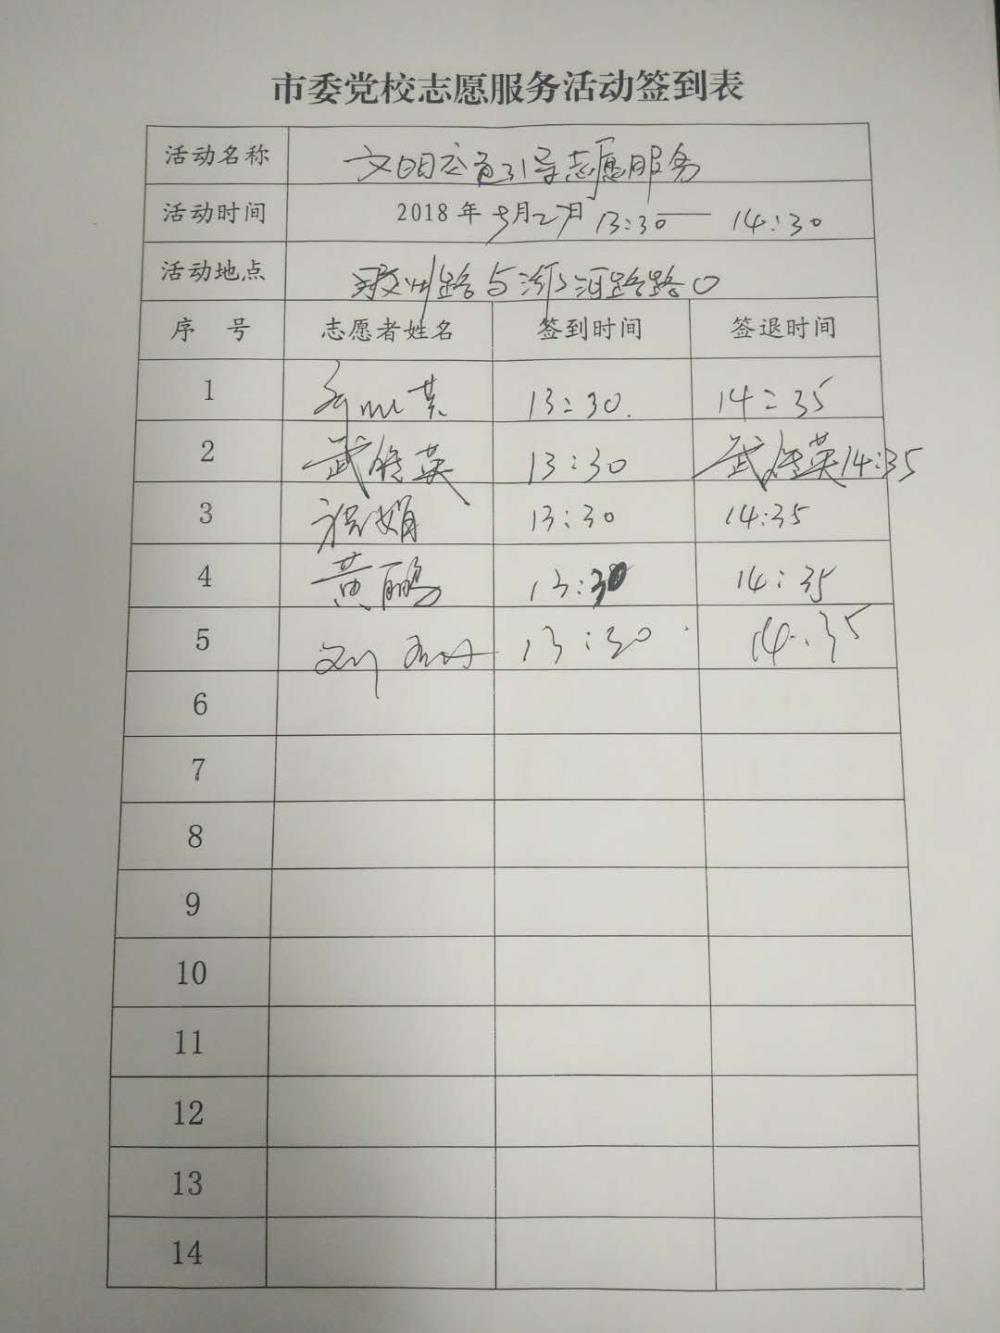 市委党校志愿服务活动签到表
活动名称 文明交通引导志愿服务
活动时间 2018年5月2 13:30—14:30
活动地点 路与河路路口
序 号 志愿者姓名 签到时间 签退时间
1 13:30. 14:35
2 武 英 13:30 武 英14:35
3 娟 13:30 14:35
4 黄鹂 13:30 14:35
5 刘 13:30 14:35
6
7
8
9
10
11
12
13
14